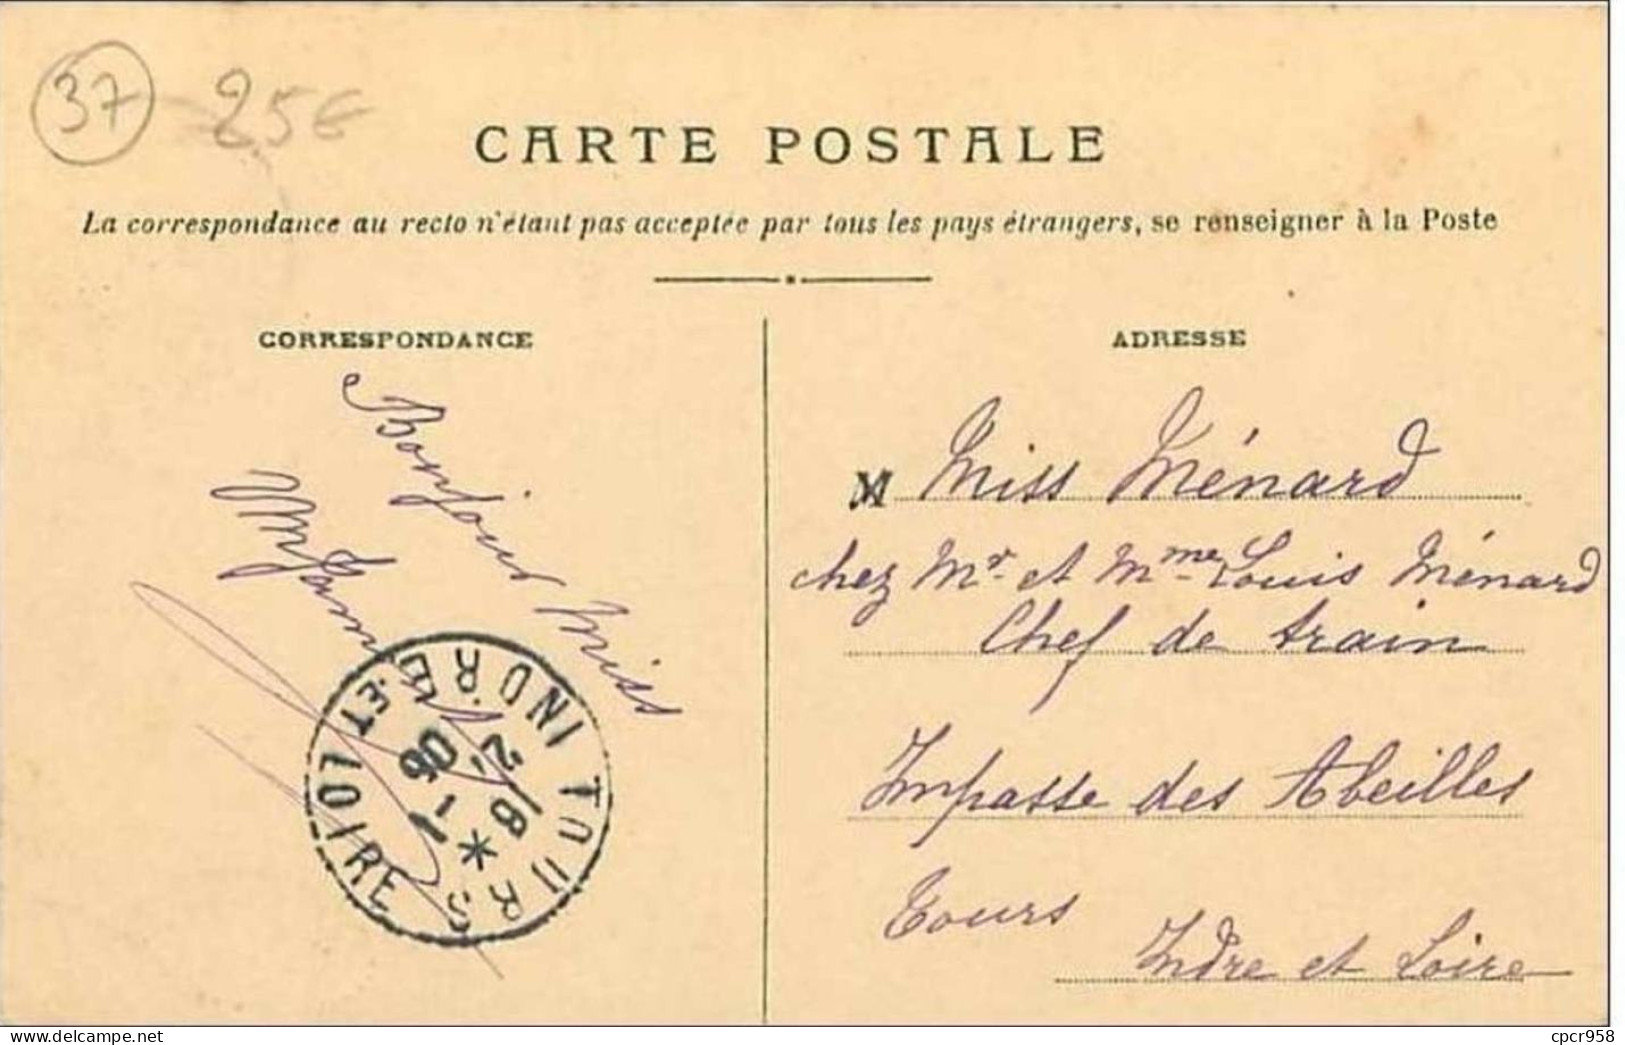 37 25€
CARTE POSTALE
La correspondance au recto n'étant pas acceptée par tous les pays étrangers, se renseigner à la Poste
CORRESPONDANCE
Bonjour Miss
TOURS INDRE-ET-LOIRE
ADRESSE
M Miss Ménard
chez Mr et Mme Louis Ménard
Chef de train
Impasse des Abeilles
Tours
Indre et Loire
cpcr958